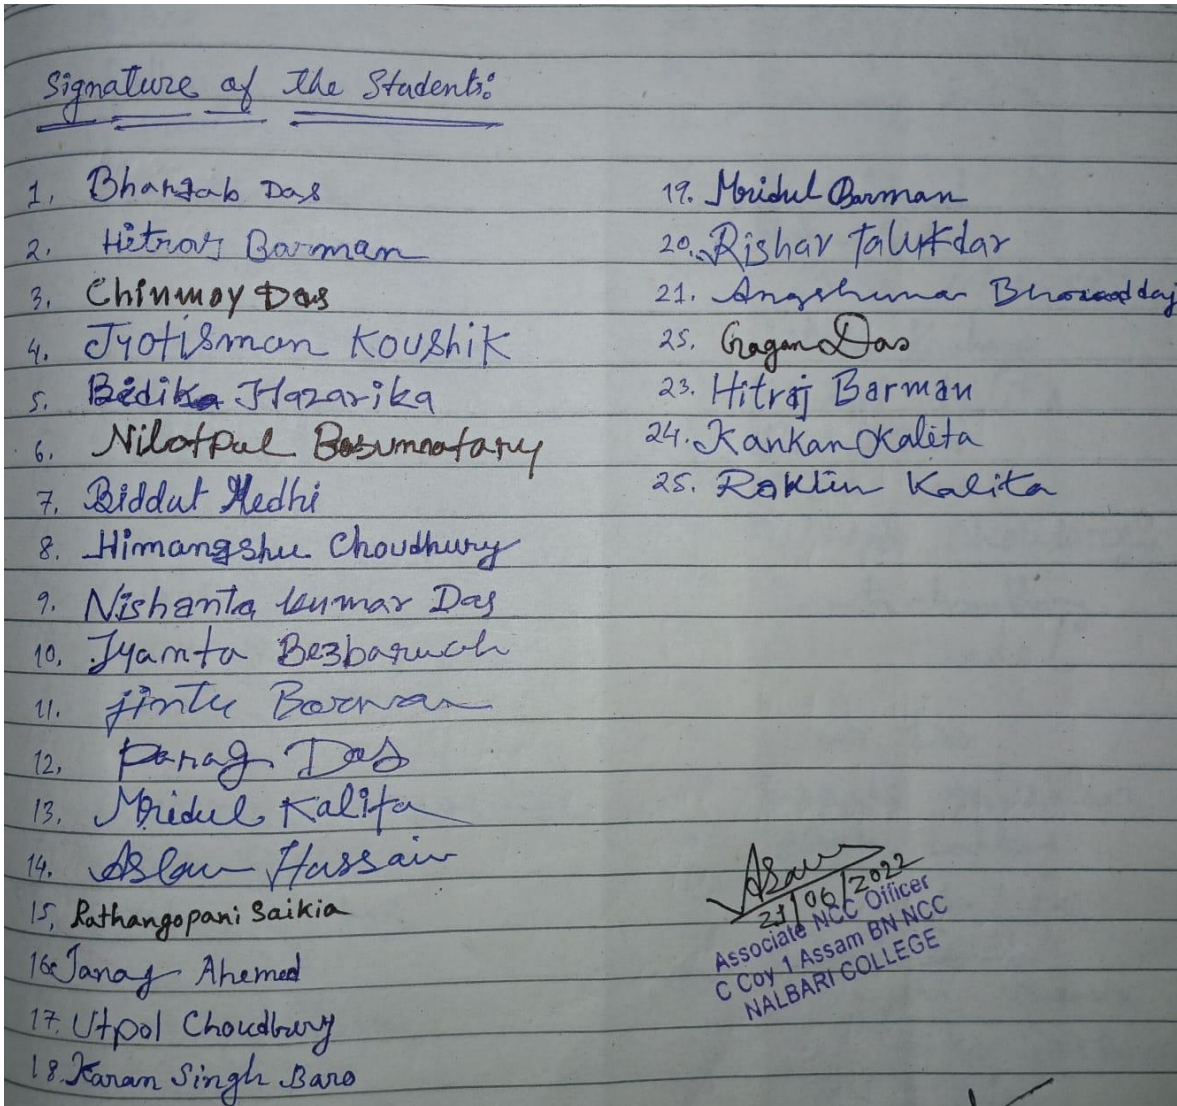 Signature of the Students:
1. Bhargab Das
2. Hitraj Barman
3. Chinmoy Das
4. Jyotisman Koushik
5. Bedika Hazarika
6. Nilotpul Basumatary
7. Biddut Medhi
8. Himangshu Choudhury
9. Nishanta kumar Das
10. Jyamta Bezbaruah
11. jintu Barman
12. Parag Das
13. Mridul Kalita
14. Aslam Hussain
15. Rathangopani Saikia
16. Ahemed
17. Utpol Choudhury
18. Karan Singh Baro
19. Mridul Barman
20. Rishav Talukdar
21. Angshuman
25. Gagan Das
23. Hitraj Barman
24. Kankan Kalita
25. Kalita
21/06/2022
Associate NCC Officer
C Coy 1 Assam BN NCC
NALBARI COLLEGE